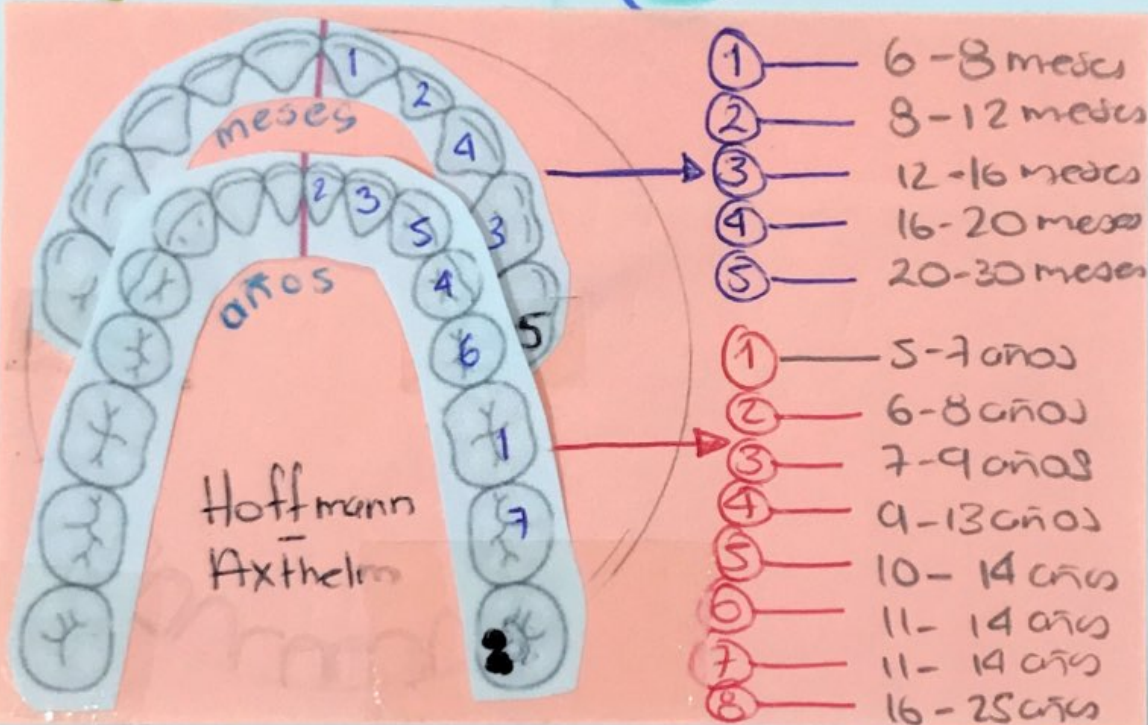 1
2
4
3
5
meses
2
3
5
4
6
1
7
8
años
Hoffmann
-
Axthelm
1 6-8 meses
2 8-12 meses
3 12-16 meses
4 16-20 meses
5 20-30 meses
1 5-7 años
2 6-8 años
3 7-9 años
4 9-13 años
5 10-14 años
6 11-14 años
7 11-14 años
8 16-25 años